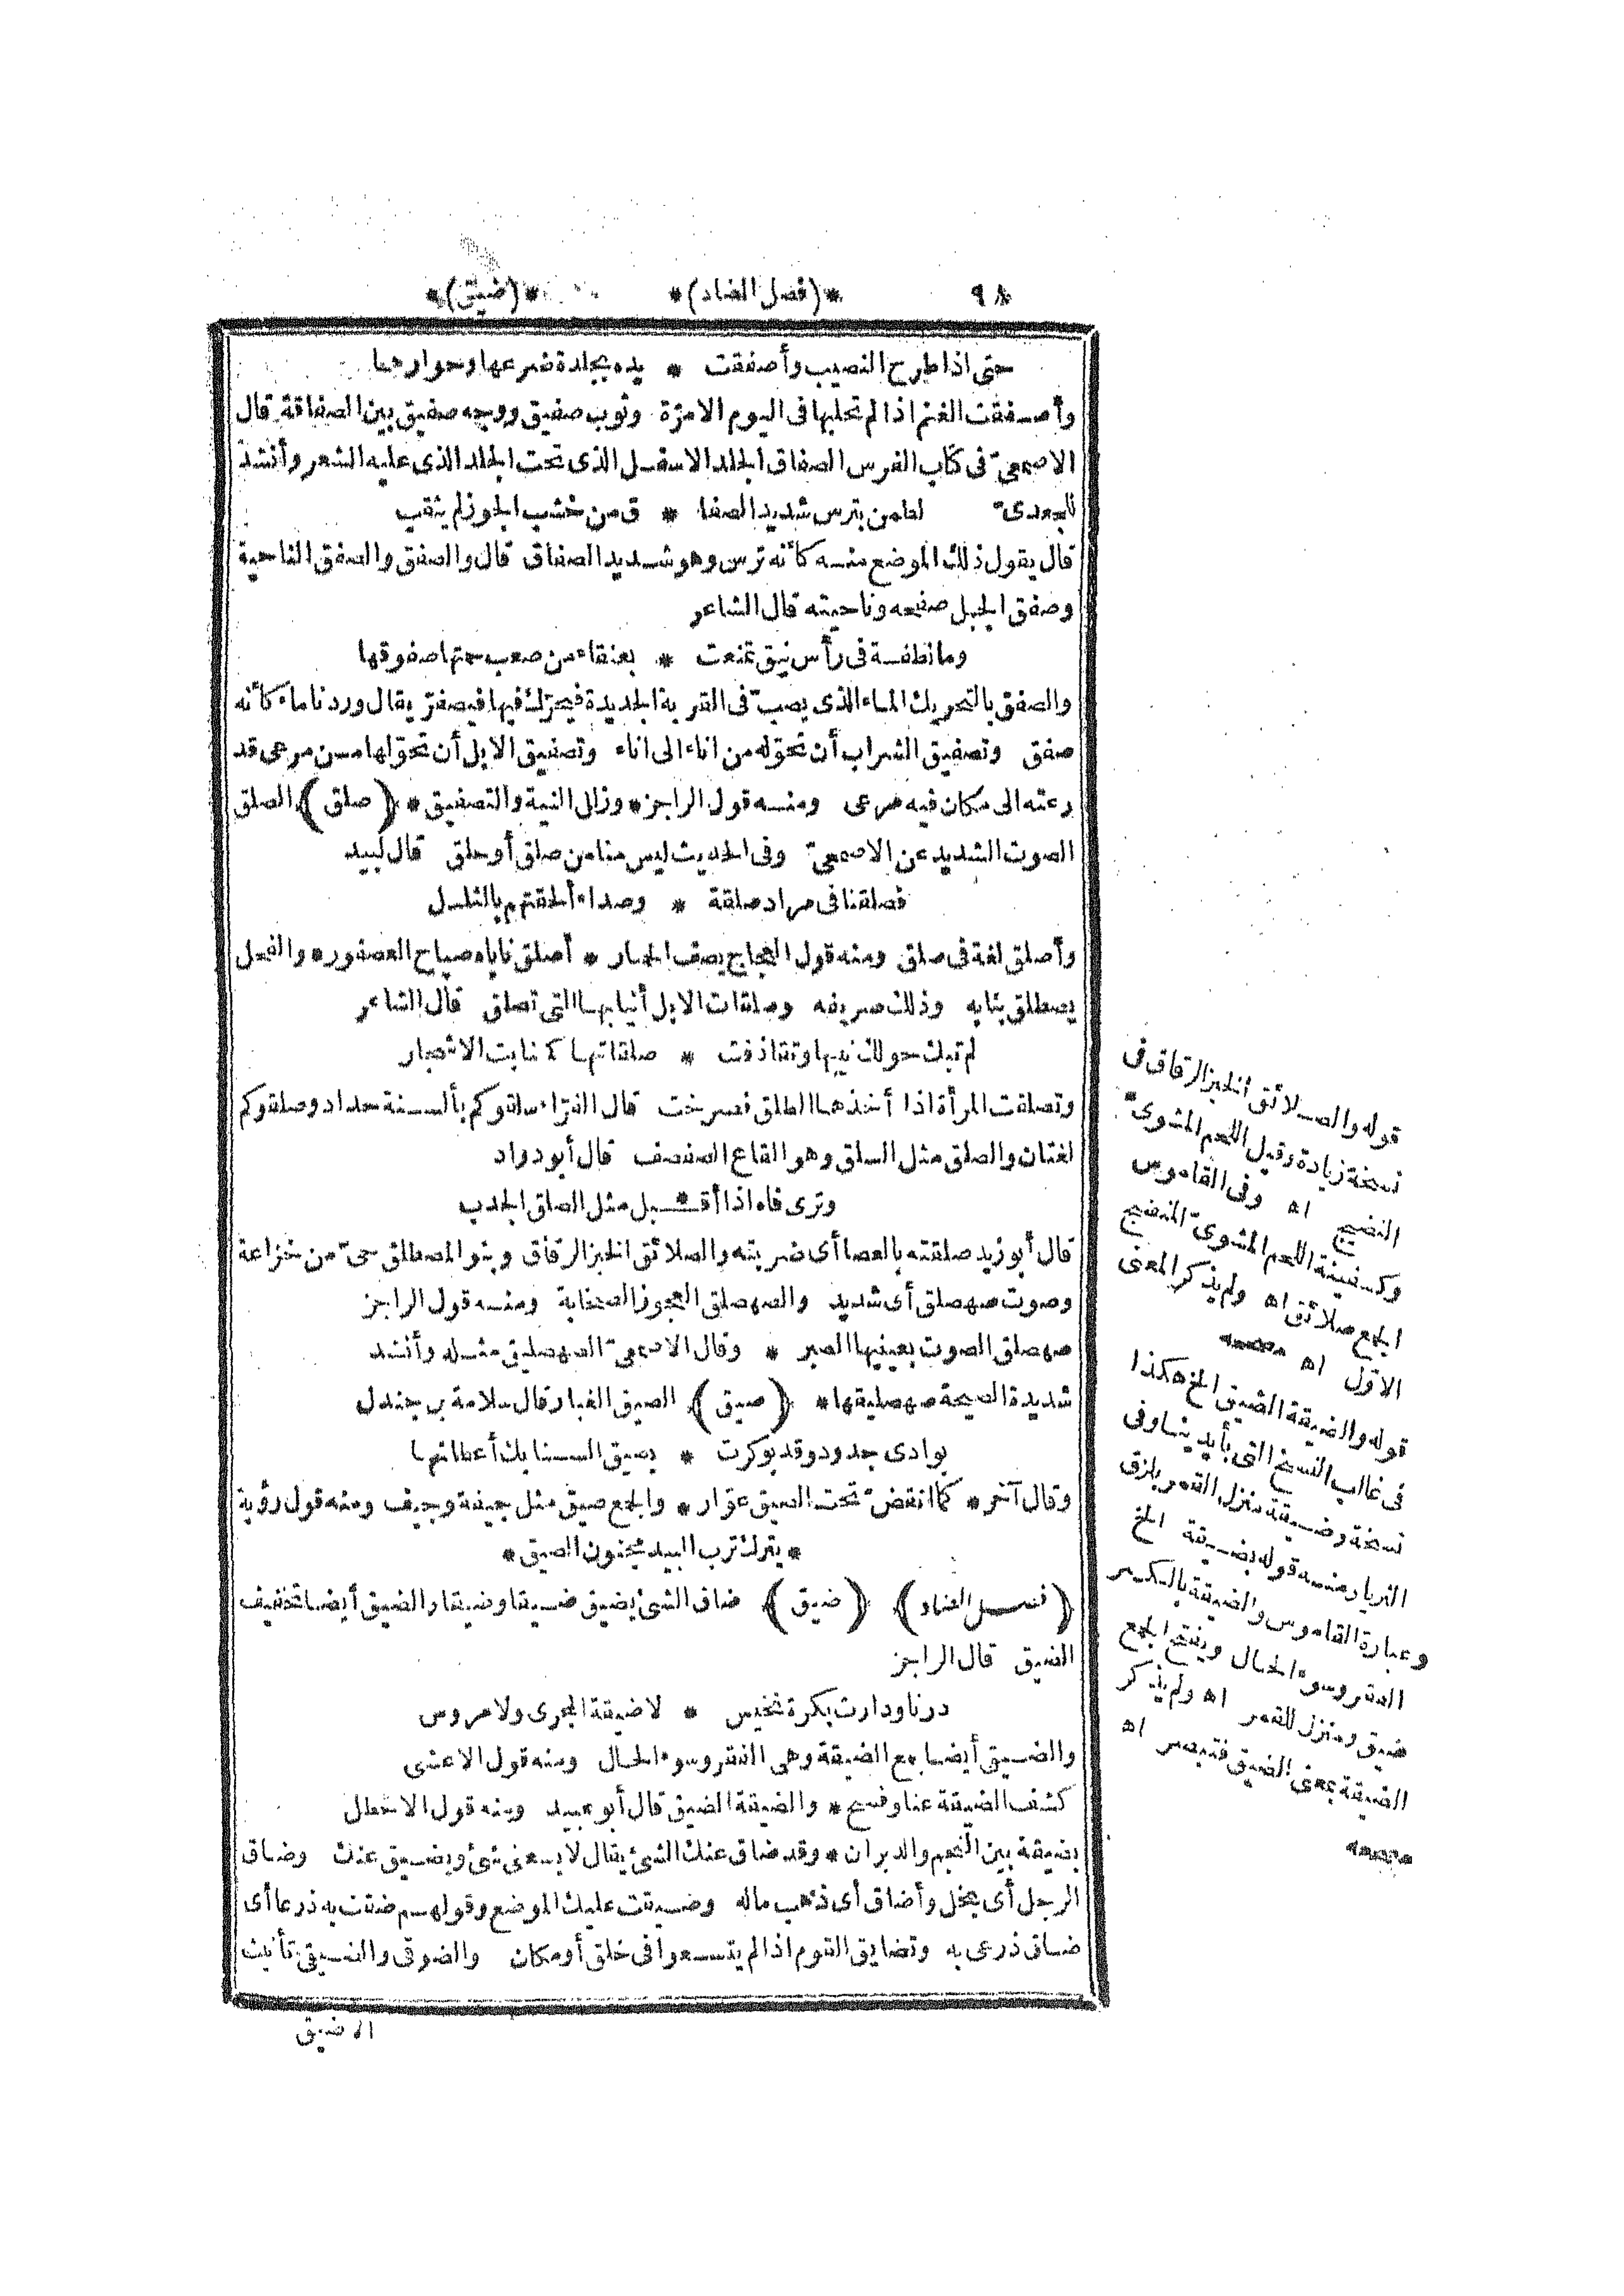 ٩٨ *(فصل الضاد)* *(ضيق)*
حتى اذا طرح النصيب وأصفقت * يده بجلدة ضرعها وحوارها
وأصفقت الغنم اذا لم تحلبها فى اليوم الا مرّة وثوب صفيق ووجه صفيق بين الصفاقة قال
الاصمعىّ فى كتاب الفرس الصفاق الجلد الاسفل الذى تحت الجلد الذى عليه الشعر وأنشد
للجعدىّ لطمن بترس شديد الصفا * ق من خشب الجوز لم يثقب
قال يقول ذلك الموضع منه كأنه ترس وهو شديد الصفاق قال والصفق والصفق الناحية
وصفق الجبل صفحه وناحيته قال الشاعر
وما نطفة فى رأس نيق تمنعت * بعنقاء من صعب حمتها صفوقها
والصفق بالتحريك الماء الذى يصبّ فى القربة الجديدة فيحرّك فيها فيصفرّ يقال وردنا ماء كأنه
صفق وتصفيق الشراب أن تحوّله من اناء الى اناء وتصفيق الابل أن تحوّلها من مرعى قد
رعته الى مكان فيه مرعى ومنه قول الراجز * وزال النية والتصفيق * (صلق) الصلق
الصوت الشديد عن الاصمعىّ وفى الحديث ليس منا من صلق أو حلق قال لبيد
فصلقنا فى مراد صلقة * وصداء ألحقتهم بالثلل
وأصلق لغة فى صلق ومنه قول العجاج يصف الحمار * أصلق ناباه صياح العصفور * والفحل
يصطلق بنابه وذلك صريفه وصلقات الابل أنيابها التى تصلق قال الشاعر
لم تبك حولك نيبها وتقاذفت * صلقاتها كمنابت الاشجار
وتصلقت المرأة اذا أخذها الطلق فصرخت قال الفرّاء سلقوكم بألسنة حداد وصلقوكم
لغتان والصلق مثل السلق وهو القاع الصفصف قال أبو دواد
وترى فاه اذا أقـ*ـبل مثل الصلق الجدب
قال أبو زيد صلقته بالعصا أى ضربته والصلائق الخبز الرقاق وبنو المصطلق حىّ من خزاعة
وصوت صهصلق أى شديد والصهصلق العجوز الصخابة ومنه قول الراجز
صهصلق الصوت بعينيها الصبر * وقال الاصمعىّ الصهصليق مثله وأنشد
شديدة الصيحة صهصليقها * (صيق) الصيق الغبار قال سلامة بن جندل
بوادى جدود وقد بوكرت * بصيق السنابك أعطانها
وقال آخر * كما انقضّ تحت الصيق عوّار * والجمع صيق مثل جيفة وجيف ومنه قول رؤبة
* يتركن ترب البيد مجنون الصيق *
(فصل الضاد) (ضيق) ضاق الشئ يضيق ضيقا وضيقا والضيق أيضا تخفيف
الضيق قال الراجز
درنا ودارت بكرة نخيس * لا ضيقة المجرى ولا مروس
والضيق أيضا جمع الضيقة وهى الفقر وسوء الحال ومنه قول الاعشى
كشف الضيقة عنا وفسح * والضيقة الضيق قال أبو عبيد ومنه قول الاخطل
بضيقة بين النجم والدبران * وقد ضاق عنك الشئ يقال لا يسعنى شئ ويضيق عنك وضاق
الرجل أى بخل وأضاق أى ذهب ماله وضيقت عليك الموضع وقولهم ضقت به ذرعا أى
ضاق ذرعى به وتضايق القوم اذا لم يتسعوا فى خلق أو مكان والضوقى والضيقى تأنيث
الاضيق
قوله والصلائق الخبز الرقاق فى
نسخة زيادة وقيل اللحم المشوىّ
النضيج اه وفى القاموس
وكسفينة اللحم المشوىّ المنضج
الجمع صلائق اه ولم يذكر المعنى
الاوّل اه مصححه
قوله والضيقة الضيق الخ هكذا
فى غالب النسخ التى بأيدينا وفى
نسخة وضيقة منزل القمر بلزق
الثريا ومنه قوله بضيقة الخ
وعبارة القاموس والضيقة بالكسر
الفقر وسوء الحال ويفتح الجمع
ضيق ومنزل للقمر اه ولم يذكر
الضيقة بمعنى الضيق فتبصر اه
مصححه